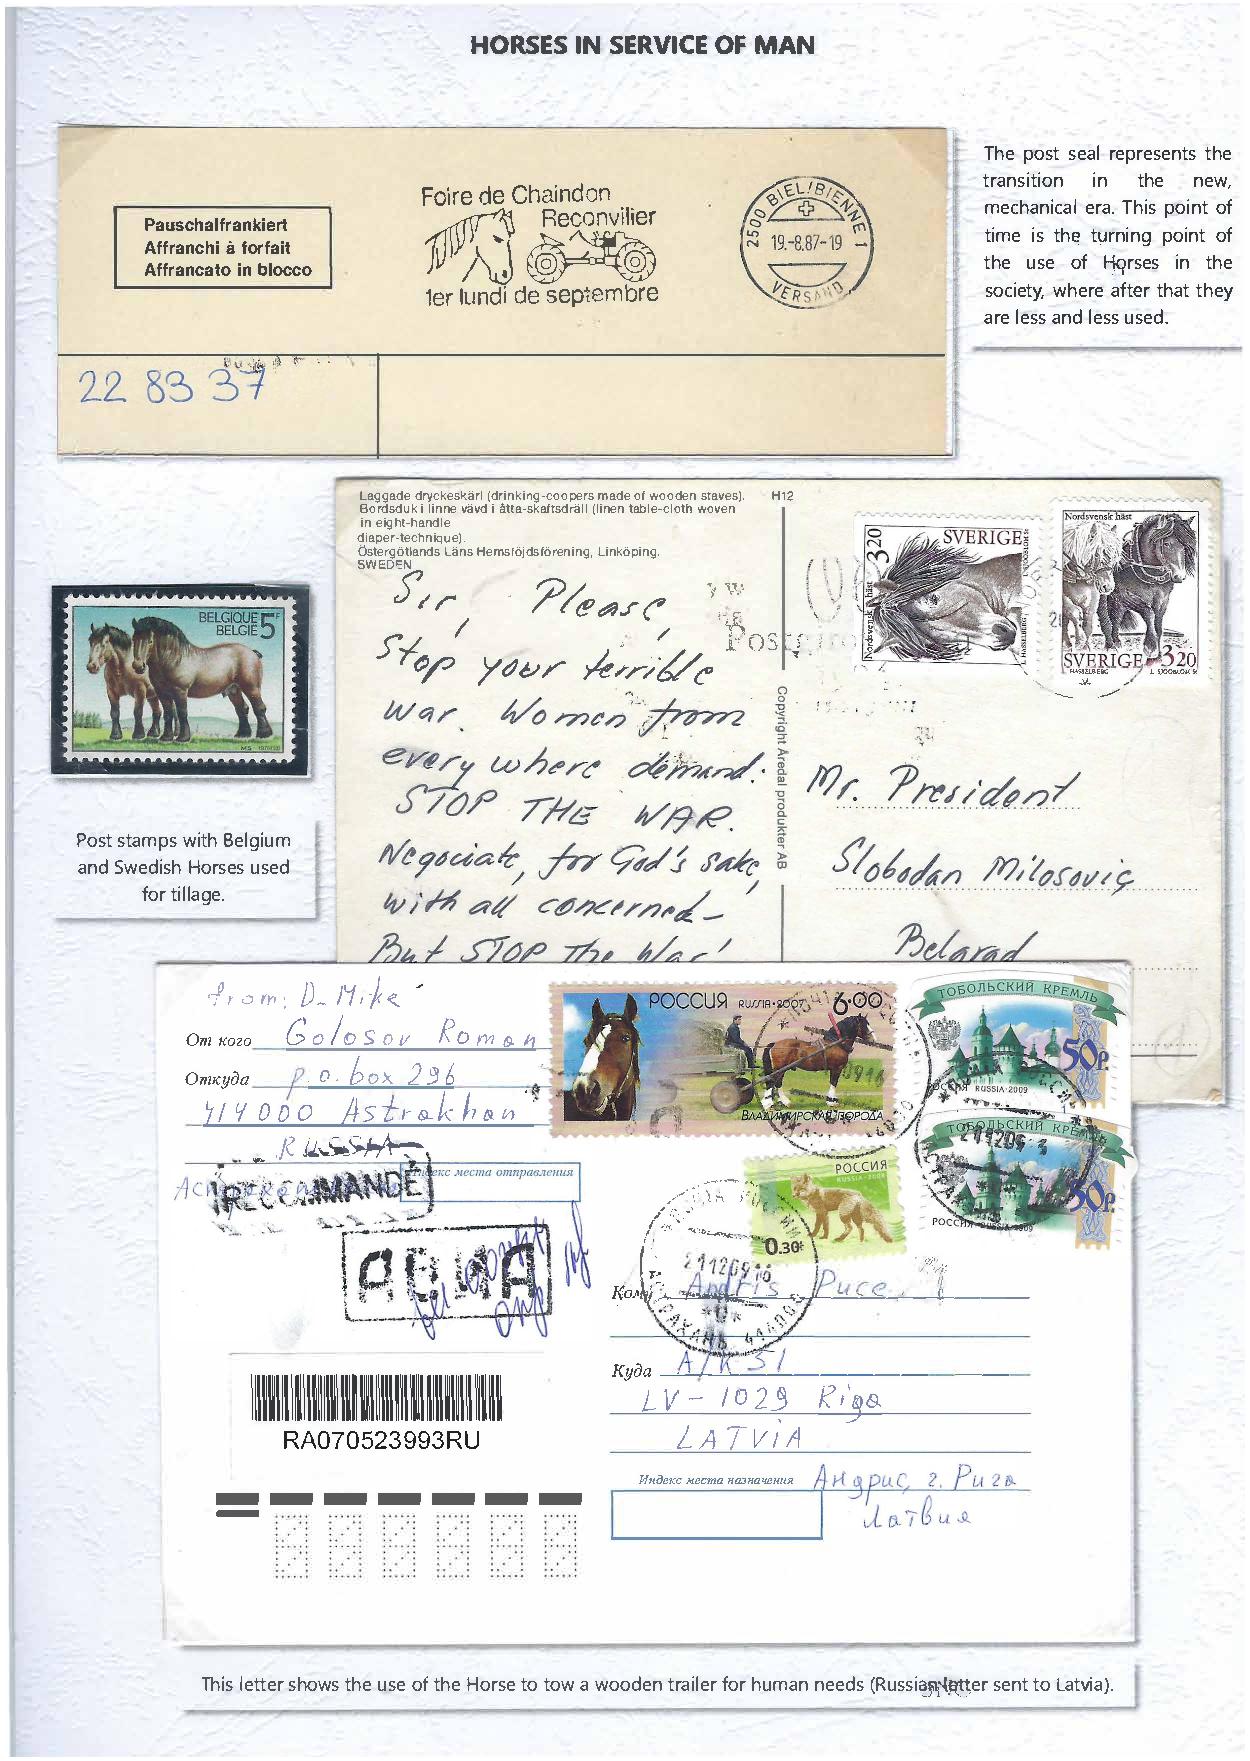 HORSES IN SERVICE OF MAN
Pauschalfrankiert
Affranchi à forfait
Affrancato in blocco
Foire de Chaindon
Reconvilier
1er lundi de septembre
2500 BIEL/BIENNE 1
19.-8.87-19
VERSAND
22 83 37
The post seal represents the
transition in the new,
mechanical era. This point of
time is the turning point of
the use of Horses in the
society, where after that they
are less and less used.
Laggade dryckeskärl (drinking-coopers made of wooden staves).
Bordsduk i linne vävd i åtta-skaftsdräll (linen table-cloth woven
in eight-handle
diaper-technique).
Östergötlands Läns Hemslöjdsförening, Linköping.
SWEDEN
H12
Sir, Please,
Stop your terrible
war. Women from
every where demand:
STOP THE WAR.
Negociate, for God's sake,
with all concerned –
But STOP the War!
Copyright Aredal produkter AB
Nordsvensk häst
SVERIGE
3 20
Nordsvensk häst
SVERIGE 3 20
HASSELBERG L SJÖÖBLOM SC
Mr. President
Slobodan Milosoviç
Belgrad
BELGIQUE
BELGIË 5F
Post stamps with Belgium
and Swedish Horses used
for tillage.
from: D. Mike
От кого Golosov Roman
Откуда p.o. box 296
414000 Astrakhan
RUSSIA
Индекс места отправления
RECOMMANDÉ
АВИА
РОССИЯ RUSSIA·2007 6·00
ВЛАДИМИРСКАЯ ПОРОДА
ТОБОЛЬСКИЙ КРЕМЛЬ
50Р.
РОССИЯ RUSSIA·2009
ТОБОЛЬСКИЙ КРЕМЛЬ
50Р.
РОССИЯ RUSSIA·2009
РОССИЯ
RUSSIA·2008
0.30
ПОЧТА РОССИИ
21120916
АСТРАХАНЬ 414000
Кому Andris Puce
Куда A/K 51
LV-1029 Riga
LATVIA
Индекс места назначения Андрис, г. Рига
Латвия
RA070523993RU
This letter shows the use of the Horse to tow a wooden trailer for human needs (Russian letter sent to Latvia).